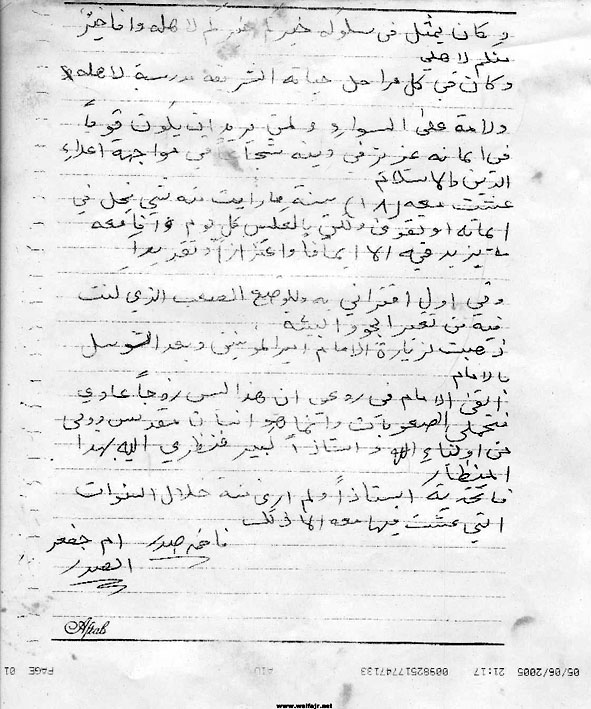 وكان يمثل في سلوكه خيركم خيركم لاهله وانا خيركم
منكم لاهلي
وكان في كل مراحل حياته الشريفة مدرسة لاهله
ولامة على السواء ولمن يريد ان يكون قوياً
في ايمانه عزيز في دينه شجاعاً في مواجهة اعداء
الدين والاسلام
عشت معه (١٨) سنة ما رايت منه شي يخل في
ايمانه او تقوى ولكن بالعكس كل يوم وانا معه
يزيد فيه الا ايماناً واعتزازاً وتقديراً
وفي اول اقتراني به وللوضع الصعب الذي كنت
فيه من تغير الجو والبيئة
ذهبت لزيارة الامام امير المومنين وبعد التوسل
بالامام
القى الامام في روعي ان هذا ليس زوجاً عادي
فتحملي الصعوبات وانما هو انسان مقدس وولي
من اولياء الله واستاذاً كبير فنظري اليه بهذا
المنظار
فاتخذته استاذاً ولم ارى منه خلال السنوات
التي عشت فيها معه الا ذلك
فاطمة صدر ام جعفر
الصدر
Aftab
05/06/2005 21:17 00982517747133 PAGE 01
www.walfajr.net